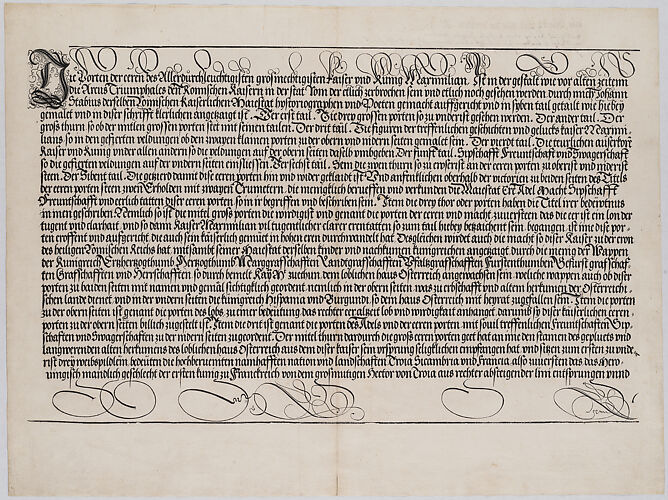 Die Porten der eren des Allerdurchleuchtigisten grosmechtigisten Kaiser vnd Kunig Maximilian. Ist in der gestalt wie vor alten zeiten in
die Arcus Triumphales den Romischen Kaisern in der stat Rom der etlich zerbrochen sein vnd etlich noch gesehen werden durch mich Johann
Stabius derselben Romischen Kaiserlichen Maiestat hystoriographen vnd Poeten gemacht auffgericht vnd in syben tail getailt wie hiebey
gemalet vnd in diser schrifft klerlichen angezaigt ist. Der erst tail. Die drey grossen porten so zu vnderist gesehen werden. Der ander tail. Der
gros thurn so ob der mitlen grossen porten stet mit seinen tailen. Der drit tail. Die figuren der treffenlichen geschichten vnd gelucks kaiser Maximi-
lians so in den gefierten veldungen ob den zwayen klainen porten zu der obern vnd vndern seiten gemalet sein. Der vierdt tail. Die teurlichen auserkorn
Kaiser vnd Kunig vnder allen andern so die veldungen auf der obern seiten daselb vmbgeben Der funft tail. Sypschafft Freuntschaft vnd Swagerschaft
so die gefierten veldungen auf der vndern seiten einschliessen Der sechst tail. Sein die zwen thurn so zu eusserist an der eeren porten zu oberist vnd niderist
steen. Der Sibent tail. Die gezierd damit dise eeren porten hin vnd wider getailt ist. Vnd anfencklichen oberhalb der victorien zu beiden seiten des Titls
ber eeren porten steen zwen Erholden mit zwayen Trumetern. die meniglich berueffen vnd verkunden die Maiestat Err Adel Macht Sypschafft
Freuntschafft vnd eerlich tatten diser eeren porten so in ir begriffen vnd beschriben sein. Item die drey thor oder porten haben die Titel irer bedewtnus
in inen geschriben Nemlich so ist die mitel gros porten die wirdigist vnd genant die porten der eeren vnd macht zuuersteen das die eer ist ein lon der
tugent vnd clarhait vnd so dann Kaiser Maximilian vil tugentlicher clarer eerentatten so zum tail hiebey betzaichent sein. begangen. ist ime dise por-
ten eroffent vnd aufgericht die auch sein kaiserlich gemuet in hohen eren durchwandelt hat Desgleichen wirdet auch die macht so diser Kaiser zu der cron
des heiligen Romischen Reichs hat mitsambt seiner Maiestat derselben kinder vnd nachkumen kunigreichen angezaigt durch die menig der Wappen
der Kunigreich Ertzhertzogthumb Hertzogthumb Marggrafschafften Landtgrafschafften Pfaltzgrafschafften Furstenthumben Gefurst grafschaf-
ten Grafschafften vnd Herrschafften so durch bemelt Kay. May. auch an dem loblichen haus Osterreich angewachsen sein. weliche wappen auch ob diser
porten zu baiden seiten mit namen vnd genual sichtigklich geordent. nemlich in der obern seiten. was zu erbschafft vnd altem herkumen der Osterreichi-
schen lande dienet. vnd in der vndern seiten die kunigreich Hispania vnd Burgundi. so dem haus Osterreich mit heyrat zugefallen sein. Item die porten
zu der obern seiten ist genant die porten des lobs zu einer bedeutung das rechter eer alzeit lob vnd wirdigkait anhangt. darumb sy diser kaiserlichen eeren-
porten zu der obern seiten billich zugestelt ist. Item die drit ist genant die porten des Adels vnd der eeren porten mit souil treffenlichen Freuntschafften Syp-
schafften vnd Swagerschafften zu der nidern seiten zugeordent. Der mitel thurn dardurch die gros eeren porten geet hat an ime den stamen des gepluets vnd
langwerenden alten herkumens des loblichen haus Osterreich aus dem diser kaiser sein vrsprungklichs pluet entpfangen hat. vnd sitzen zum ersten zu vnde-
rist drey weibspilden bedeuten die hochberuemten namhafften nation vnd landschafften Troia Sicambria vnd Francia also zuuersten das das Her-
runigisch mandlich geschlecht der ersten kunig zu Franckreich von dem grosmutigen Hector von Troia aus rechter absteigender lini entsprungen vnnd